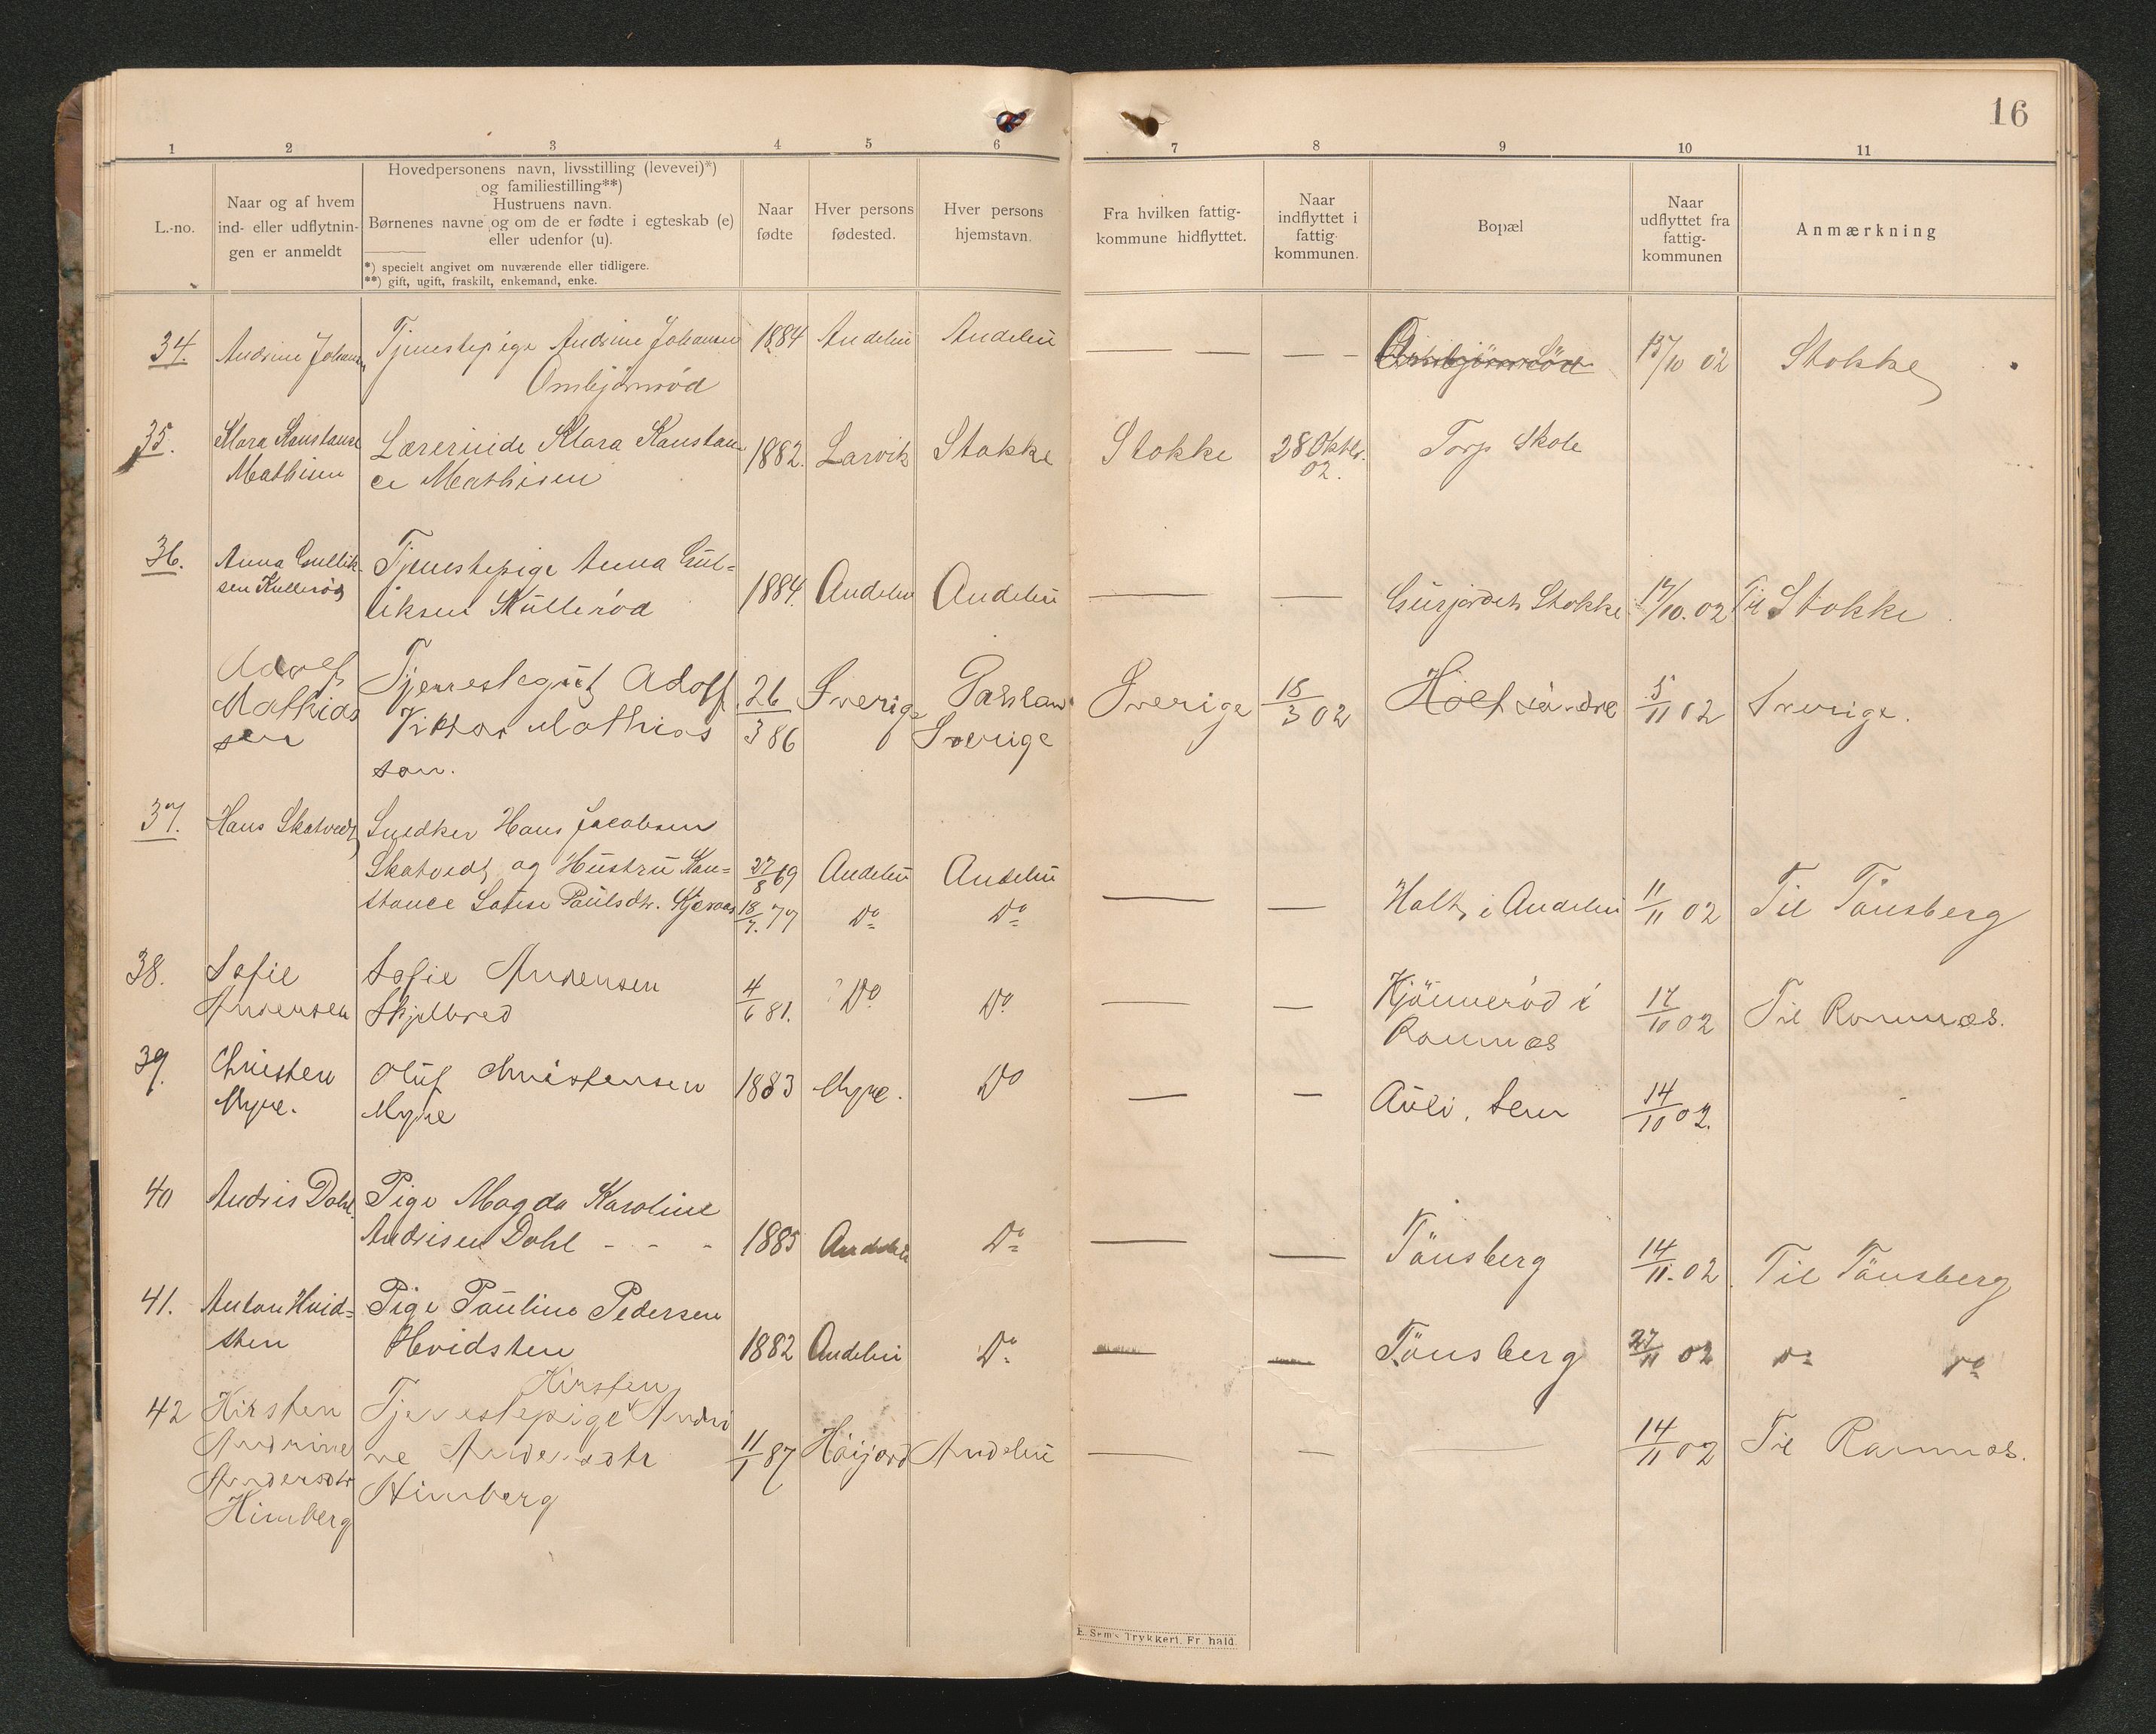 16
1 2 3 4 5 6 7 8 9 10 11
L.-no.
Naar og af hvem
ind- eller udflytnin-
gen er anmeldt
Hovedpersonens navn, livsstilling (levevei)*)
og familiestilling**)
Hustruens navn.
Børnenes navne og om de er fødte i egteskab (e)
eller udenfor (u).
*) specielt angivet om nuværende eller tidligere.
**) gift, ugift, fraskilt, enkemand, enke.
Naar
fødte
Hver persons
fødested.
Hver persons
hjemstavn.
Fra hvilken fattig-
kommune hidflyttet.
Naar
indflyttet i
fattig-
kommunen.
Bopæl
Naar
udflyttet fra
fattig-
kommunen
Anmærkning
34. Andrine Johansen Tjenestepige Andrine Johansen 1884 Andebu Andebu — — — — 15/10 02 Stokke
Ombjørnrød
35. Klara Konstanse Lærerinde Klara Konstan 1882. Larvik Stokke Stokke 28 Oktbr. Torp Skole
Mathisen ce Mathisen 02.
36. Anna Gullik- Tjenestepige Anna Gul=
sen Kullerød liksen Kullerød 1884. Andebu Andebu — — Gurjordet Stokke 17/10. 02 Til Stokke
Adolf Tjenestegut Adolf 26/3 86 Sverige Sverige 18/3 02 Holt søndre 5/11 02 Sverige.
Mathias Viktor Mathias Sverige
sen son.
37. Hans Skatvedt Snedker Hans Jacobsen
Skatvedt og Hustru Kon= 27/8 69 Andebu Andebu
stance Lovise Paulsdtr. Kjeraas 18/7. 77 Do Do — — Holt i Andebu 11/11 02 Til Tønsberg
38. Sofie Sofie Andersen 4/6 81. Do Do — — Kjønnerød i 17/10 02 Til Ramnæs.
Andersen Skjelbred Ramnæs
39. Christen Oluf Christensen 1883 Myre. Do — — Auli, Sem 14/10 02.
Myre. Myre
40 Andris Dahl. Pige Magda Karoline
Andrisen Dahl - - - 1885 Andebu Do — — Tønsberg 14/11. 02 Til Tønsberg
41. Anton Hvid= Pige Pauline Pedersen
sten Hvidsten 1882 Andebu Do — — Tønsberg 27/11 02 Do Do
Kirsten
42 Kirsten Tjenestepige Andri
Andrine ne Andersdtr 11/1 87 Høijord Andebu — — — 14/11 02 Til Ramnæs.
Andersdtr Himberg
Himberg
E. Sem's Trykkeri. Fr.hald.